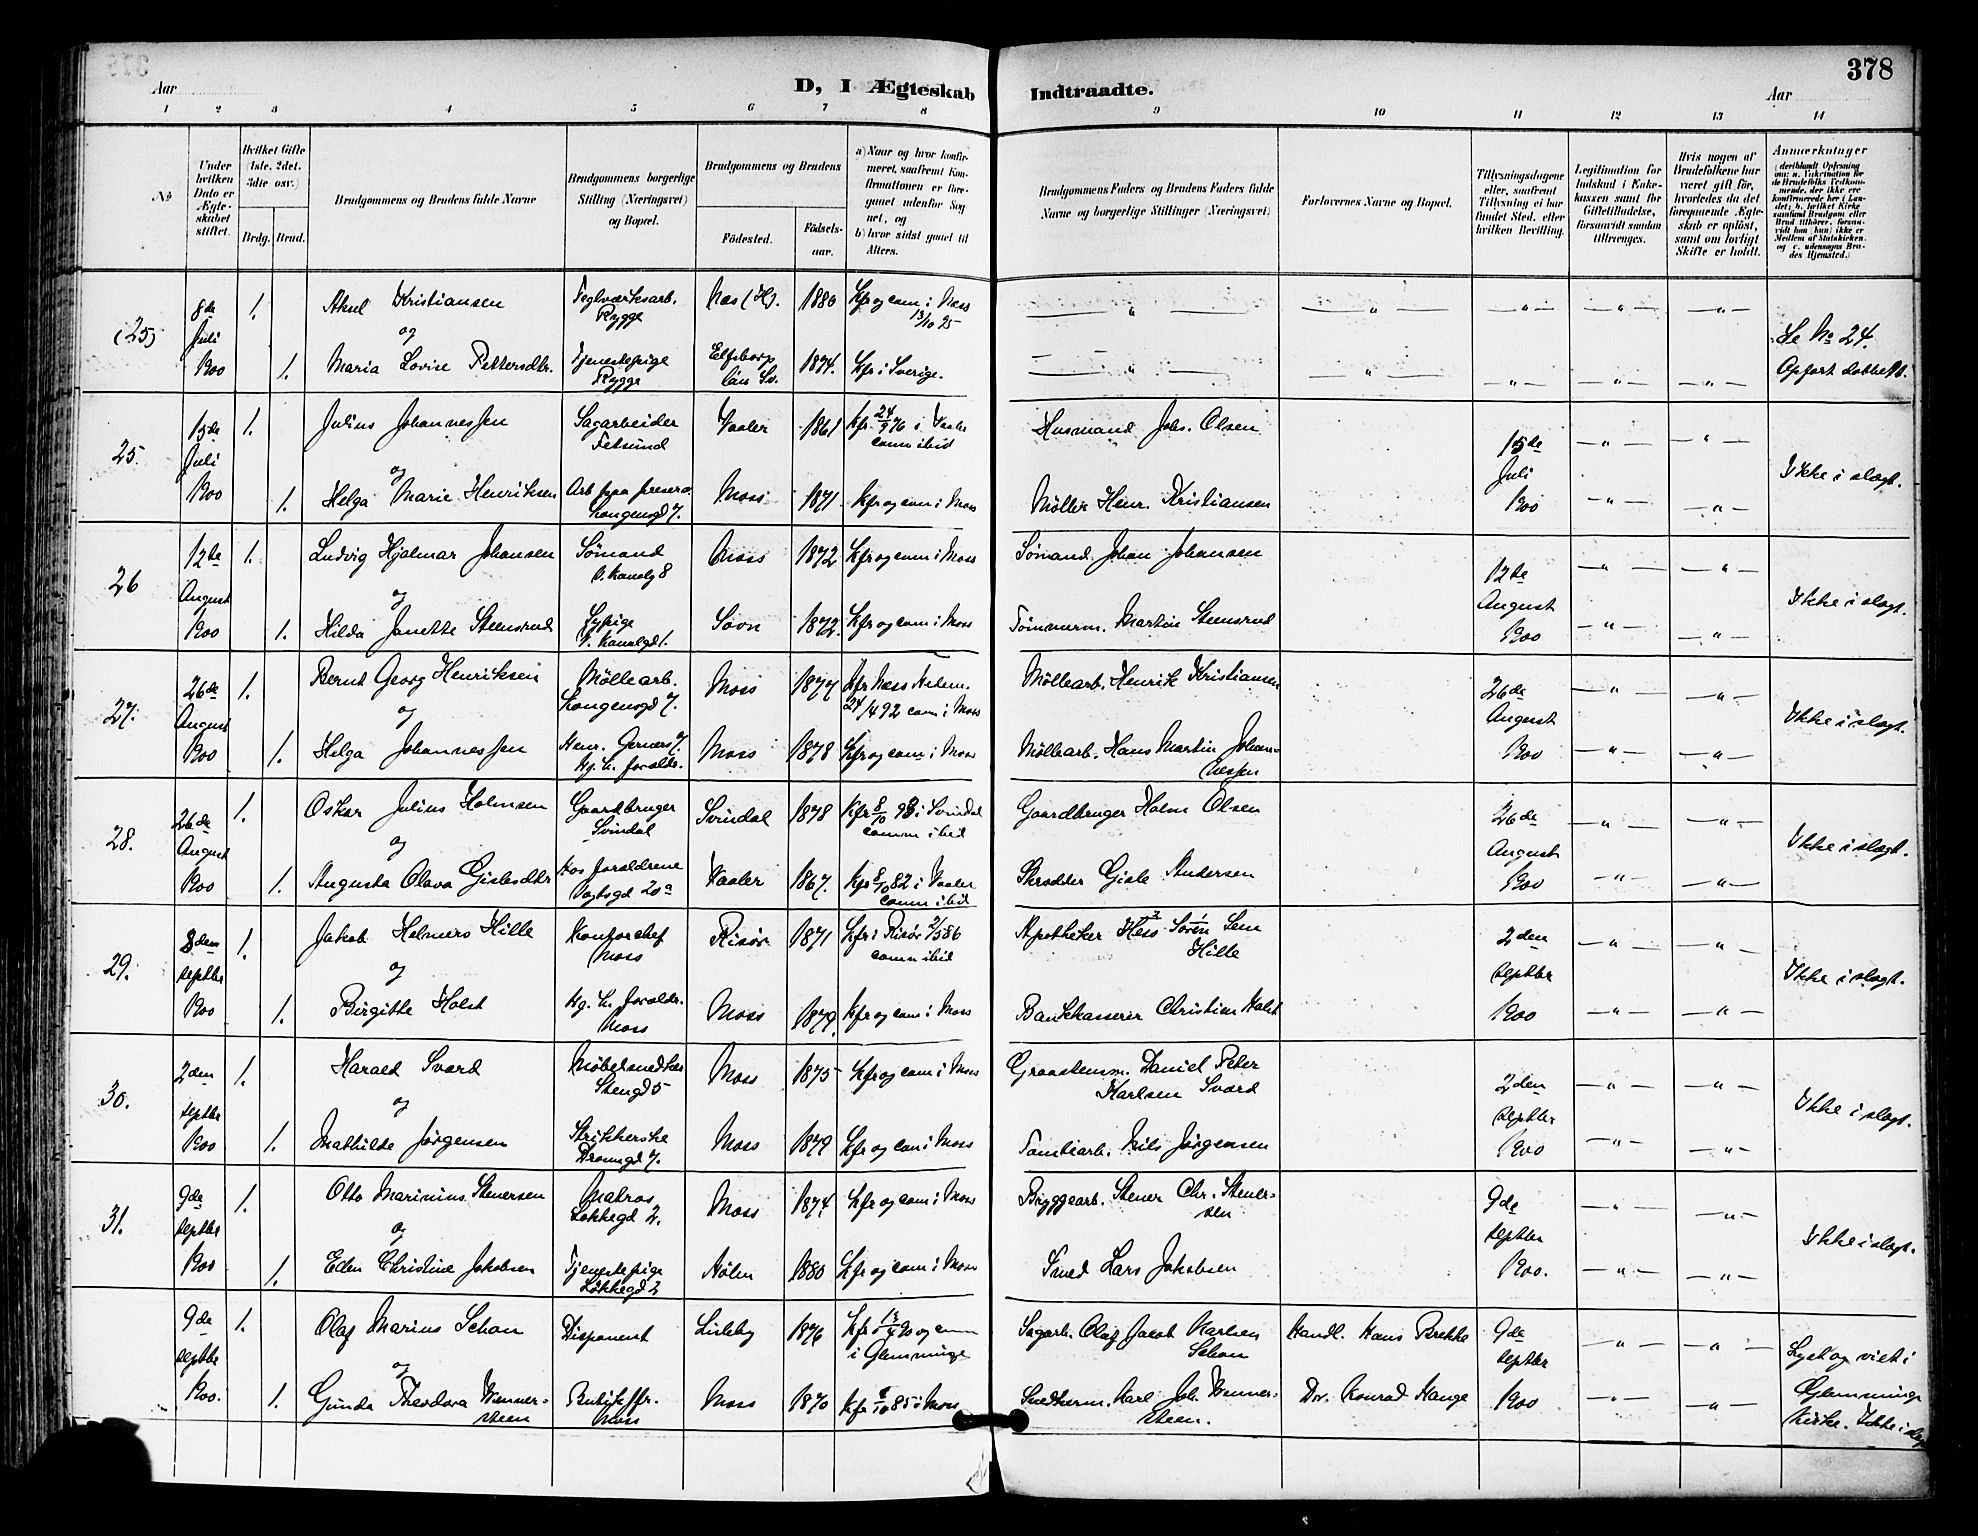 378
Aar
D, I Ægteskab
Indtraadte.
Aar
1 2 3 4 5 6 7 8 9 10 11 12 13 14
No
Under hvilken Dato er Ægteskabet stiftet.
Hvilket Gifte (1ste, 2det, 3die osv.)
Brdg. Brud.
Brudgommens og Brudens fulde Navne
Brudgommens borgerlige Stilling (Næringsvei) og Bopæl.
Brudgommens og Brudens
Fødested.
Fødselsaar.
a) Naar og hvor konfirmeret, saafremt Konfirmationen er foregaaet udenfor Sognet, og
b) hvor sidst gaaet til Alters.
Brudgommens Faders og Brudens Faders fulde Navne og borgerlige Stillinger (Næringsvei)
Forlovernes Navne og Bopæl.
Tillysningsdagene eller, saafremt Tillysning ei har fundet Sted, efter hvilken Bevilling.
Legitimation for Indskud i Enkekassen samt for Giftetilladelse, forsaavidt saadan tiltrænges.
Hvis nogen af Brudefolkene har været gift før, hvorledes da det foregaaende Ægteskab er opløst, samt om lovligt Skifte er holdt.
Anmærkninger
(25) 8de Juli 1900
1. Aksel Kristiansen Teglværksarb. Rygge Næs (H). 1880 Kfr og com i Næs 13/10 95
og
1. Maria Lovise Pettersdtr. Tjenestepige Rygge Elfsborg län Sv. 1874. Kfr i Sverige.
Se No 24. Opført dobbelt.
25. 15de Juli 1900
1. Julius Johannessen Sagarbeider Fetsund Vaaler 1861 Kfr 24/9 76 i Vaaler comm ibid Husmand Johs. Olsen 15de Juli 1900
og
1. Helga Marie Henriksen Kongensgd 7. Moss 1871 Kfr og com i Moss Møller Henr. Kristiansen
Ikke i slægt.
26 12te August 1900
1. Ludvig Hjalmar Johansen Sømand Moss 1872 Kfr og com i Moss Sømand Johan Johansen 12te August 1900
og
1. Hilda Janette Stensrud Sypige Kanalgd 1. Son 1872. Kfr og com i Moss Tømmerm. Martin Stensrud
Ikke i slægt.
27. 26de August 1900
1. Bernt Georg Henriksen Møllearb. Kongensgd 7. Moss 1877 24/4 92 com i Moss Møllearb. Henrik Kristiansen 26de August 1900
og
1. Helga Johannessen Henr. Gernersg 7. Hj. h. foreldr. Moss 1878 Kfr og com i Moss Møllearb. Hans Martin Johannessen
Ikke i slægt.
28. 26de August 1900
1. Oskar Julius Holmsen Gaardbruger Svindal Svindal 1878 Kfr 8/10 93 i Svindal comm ibid Gaardbruger Holm Olsen 26de August 1900
og
1. Augusta Olava Gislesdtr Hos forældrene Vogtsgd 20a Vaaler 1867. Kfr 8/10 82 i Vaaler comm ibid Skrædder Gisle Andersen
Ikke i slægt.
29. 2den septbr 1900
1. Jakob Helmers Hille Kontorchef Moss Risør 1871 Kfr i Risør 2/5 86 comm ibid Apotheker Hess Sören Lem Hille 2den septbr 1900
og
1. Birgitte Holst Hj. h. foreldr. Moss Moss 1879. Kfr og com i Moss Bankkasserer Christian Holst
Ikke i slægt.
30. 2den septbr 1900
1. Harald Svärd Møbelsnedker Stengd 5 Moss 1875 Kfr og com i Moss Graastensm. Daniel Peter Karlsen Svärd 2den septbr 1900
og
1. Mathilde Jørgensen Strikkerske Dronngd 7. Moss 1879 Kfr og com i Moss Tomtearb. Nils Jørgensen
Ikke i slægt.
31. 9de septbr 1900
1. Otto Marinius Stenersen Matros Løkkegd 2. Moss 1874 Kfr og com i Moss Bryggearb. Stener Chr. Stenersen 9de septbr 1900.
og
1. Ellen Christine Jakobsen Tjenestepige Løkkegd 2 Hølen 1880 Kfr og com i Moss Smed Lars Jakobsen
Ikke i slægt.
9de septbr 1900.
1. Olaf Marius Schou Disponent Lisleby 1876 Kfr 13/4 90 og com i Glemminge Sagarb. Olaf Jacob Karlsen Schou Handl. Hans Brekke 9de septbr 1900
og
1. Gunda Theodora Wennersteen Butikkfr. Moss Moss 1870 Kfr 4/10 85 i Moss Snedkerm. Karl Joh. Wennersteen. Dr. Konrad Hauge
Lyst og viet i Glemminge kirke. Ikke i slægt